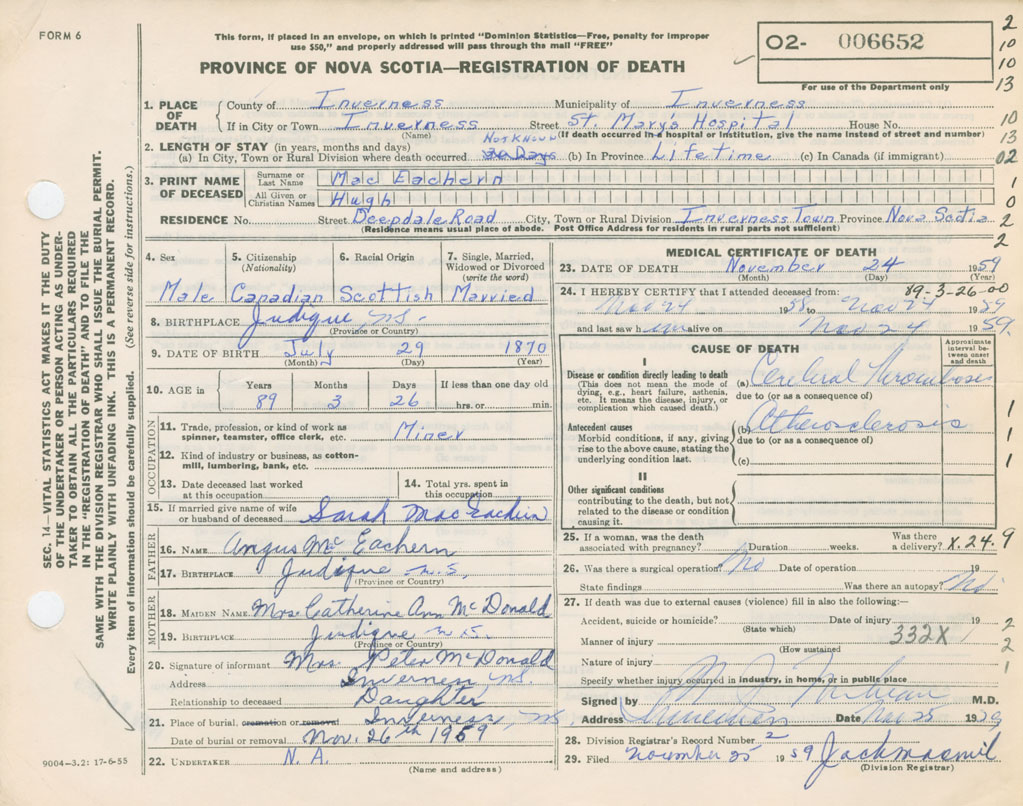 FORM 6
This form, if placed in an envelope, on which is printed "Dominion Statistics—Free, penalty for improper
use $50," and properly addressed will pass through the mail "FREE"
PROVINCE OF NOVA SCOTIA—REGISTRATION OF DEATH
02- 006652
For use of the Department only
2
10
10
13
10
13
02
1
0
2
2
SEC. 14—VITAL STATISTICS ACT MAKES IT THE DUTY
OF THE UNDERTAKER OR PERSON ACTING AS UNDER-
TAKER TO OBTAIN ALL THE PARTICULARS REQUIRED
IN THE "REGISTRATION OF DEATH" AND TO FILE THE
SAME WITH THE DIVISION REGISTRAR WHO SHALL ISSUE THE BURIAL PERMIT.
WRITE PLAINLY WITH UNFADING INK. THIS IS A PERMANENT RECORD.
Every item of information should be carefully supplied. (See reverse side for instructions.)
1. PLACE OF DEATH
County of Inverness Municipality of Inverness
If in City or Town Inverness Street St. Mary's Hospital House No.
(Name) (If death occurred in a hospital or institution, give the name instead of street and number)
2. LENGTH OF STAY (in years, months and days) Not Known
(a) In City, Town or Rural Division where death occurred 20 Days (b) In Province Lifetime (c) In Canada (if immigrant)
3. PRINT NAME OF DECEASED
Surname or Last Name Mac Eachern
All Given or Christian Names Hugh
RESIDENCE No. Street Deepdale Road City, Town or Rural Division Inverness Town Province Nova Scotia
(Residence means usual place of abode. Post Office Address for residents in rural parts not sufficient)
4. Sex 5. Citizenship (Nationality) 6. Racial Origin 7. Single, Married, Widowed or Divorced (write the word)
Male Canadian Scottish Married
8. BIRTHPLACE Judique N.S.
(Province or Country)
9. DATE OF BIRTH July 29 1870
(Month) (Day) (Year)
10. AGE in Years Months Days If less than one day old
89 3 26 hrs. or min.
OCCUPATION
11. Trade, profession, or kind of work as
spinner, teamster, office clerk, etc. Miner
12. Kind of industry or business, as cotton-
mill, lumbering, bank, etc.
13. Date deceased last worked
at this occupation
14. Total yrs. spent in
this occupation
15. If married give name of wife
or husband of deceased Sarah MacEachern
FATHER
16. NAME Angus Mc Eachern
17. BIRTHPLACE Judique N.S.
(Province or Country)
MOTHER
18. MAIDEN NAME Mrs Catherine Ann McDonald
19. BIRTHPLACE Judique N.S.
(Province or Country)
20. Signature of informant Mrs. Peter McDonald
Address Inverness, N.S.
Relationship to deceased Daughter
21. Place of burial, cremation or removal Inverness, N.S.
Date of burial or removal Nov. 26th 1959
22. UNDERTAKER N. A.
(Name and address)
9004-3.2: 17-6-55
MEDICAL CERTIFICATE OF DEATH
23. DATE OF DEATH November 24 1959
(Month) (Day) (Year)
24. I HEREBY CERTIFY that I attended deceased from: 89-3-26-00
Nov 24 19 to Nov 24 1959
and last saw him alive on Nov 24 1959.
CAUSE OF DEATH
Approximate interval between onset and death
I
Disease or condition directly leading to death
(This does not mean the mode of
dying, e.g., heart failure, asthenia,
etc. It means the disease, injury, or
complication which caused death.)
(a) Cerebral Thrombosis
due to (or as a consequence of)
Antecedent causes
Morbid conditions, if any, giving
rise to the above cause, stating the
underlying condition last.
(b) Atherosclerosis
due to (or as a consequence of)
(c)
1
1
1
II
Other significant conditions
contributing to the death, but not
related to the disease or condition
causing it.
25. If a woman, was the death
associated with pregnancy? Duration weeks. Was there
a delivery? X.24.9
26. Was there a surgical operation? No Date of operation 19
State findings Was there an autopsy? No
27. If death was due to external causes (violence) fill in also the following:—
Accident, suicide or homicide? (State which) Date of injury 19
Manner of injury 332X
(How sustained)
Nature of injury
Specify whether injury occurred in industry, in home, or in public place
2
2
1
Signed by M.D.
Address Inverness Date Nov 25 1959
28. Division Registrar's Record Number 2
29. Filed November 25 1959
(Division Registrar)